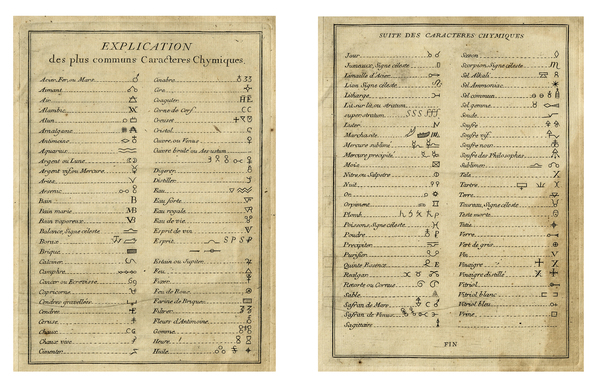 EXPLICATION
des plus communs Caracteres Chymiques.
Acier, Fer, ou Mars
Aimant
Air
Alambic
Alun
Amalgame
Antimoine
Aquarius
Argent ou Lune
Argent vif ou Mercure
Aries
Arsenic
Bain
Bain marie
Bain vaporeux
Balance, Signe céleste
Borax
Brique
Calciner
Camphre
Cancer ou Ecrevisse
Capricorne
Cendres gravellées
Cendres
Ceruse
Chaux
Chaux vive
Cimenter
Cinabre
Cire
Coaguler
Corne de Cerf
Creuset
Cristal
Cuivre ou Venus
Digerer
Distiller
Eau
Eau forte
Eau regale
Eau de vie
Esprit de vin
Esprit
Estain ou Jupiter
Feu
Fixer
Feu de Roue
Farine de Briques
Filtrer
Fleurs d'Antimoine
Gomme
Heure
Huile
SUITE DES CARACTERES CHYMIQUES
Jour
Limaille d'Acier
Lion Signe céleste
Litharge
Lit sur lit ou stratum
super stratum
Marchasite
Mercure sublimé
Mercure precipité
Mois
Nitre ou Salpetre
Nuit
Or
Plomb
Poissons, Signe céleste
Poudre
Precipiter
Purifier
Quinte Essence
Realgar
Retorte ou Cornue
Sable
Safran de Mars
Safran de Venus
Sagittaire
Savon
Scorpion, Signe céleste
Sel Alkali
Sel Ammoniac
Sel commun
Sel gemme
Soude
Souffre
Souffre vif
Souffre noir
Souffre des Philosophes
Sublimer
Talc
Tartre
Terre
Taureau, Signe céleste
Teste morte
Tutie
Verre
Vert de gris
Vin
Vinaigre
Vinaigre distillé
Vitriol
Vitriol blanc
Vitriol bleu
Urine
FIN